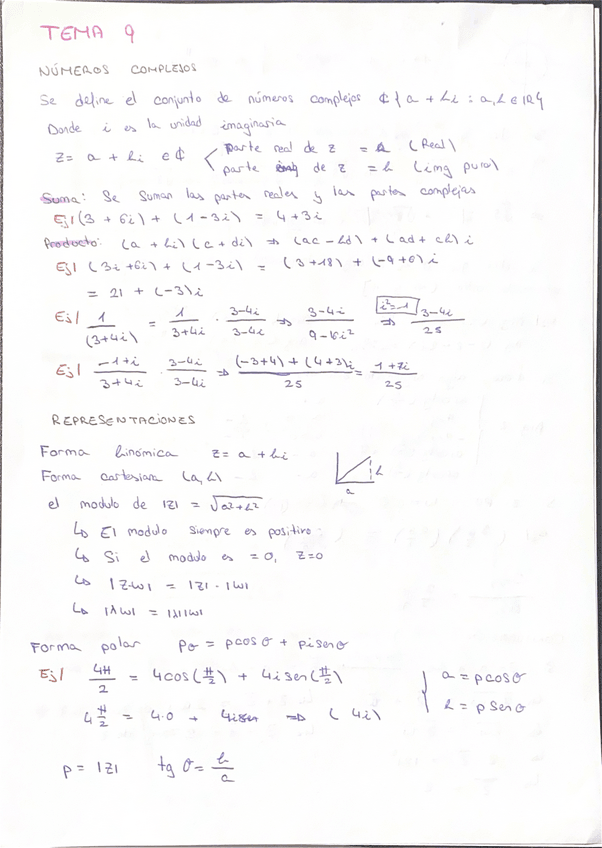 TEMA 9
NÚMEROS COMPLEJOS
Se define el conjunto de números complejos ₵ { a + bi : a, b ∈ IR}
Donde i es la unidad imaginaria
z = a + bi ∈ ₵ < parte real de z = a (Real)
parte img de z = b (img pura)
Suma: Se suman las partes reales y las partes complejas
Ej/ (3 + 6i) + (1 - 3i) = 4 + 3i
Producto: (a + bi)(c + di) ⇒ (ac - bd) + (ad + cb) i
Ej/ (3i + 6i) + (1 - 3i) = (3 + 18) + (-9 + 6) i
= 21 + (-3) i
Ej/ 1/(3+4i) = 1/3+4i · 3-4i/3-4i ⇒ 3-4i/9-16i² i²=1 ⇒ 3-4i/25
Ej/ -1+i/3+4i · 3-4i/3-4i ⇒ (-3+4) + (4+3)i/25 = 1+7i/25
REPRESENTACIONES
Forma binómica z = a + bi
Forma cartesiana (a, b)
a b
el modulo de |z| = √a²+b²
↳ El modulo siempre es positivo
↳ Si el modulo es = 0, z=0
↳ |z·w| = |z| · |w|
↳ |λw| = |λ||w|
Forma polar ρσ = ρcosσ + ρisenσ
Ej/ 4π/2 = 4cos(π/2) + 4isen(π/2)
{ a = ρcosσ
b = ρsenσ
4π/2 = 4·0 + 4isen ⇒ (4i)
ρ = |z| tg σ = b/a